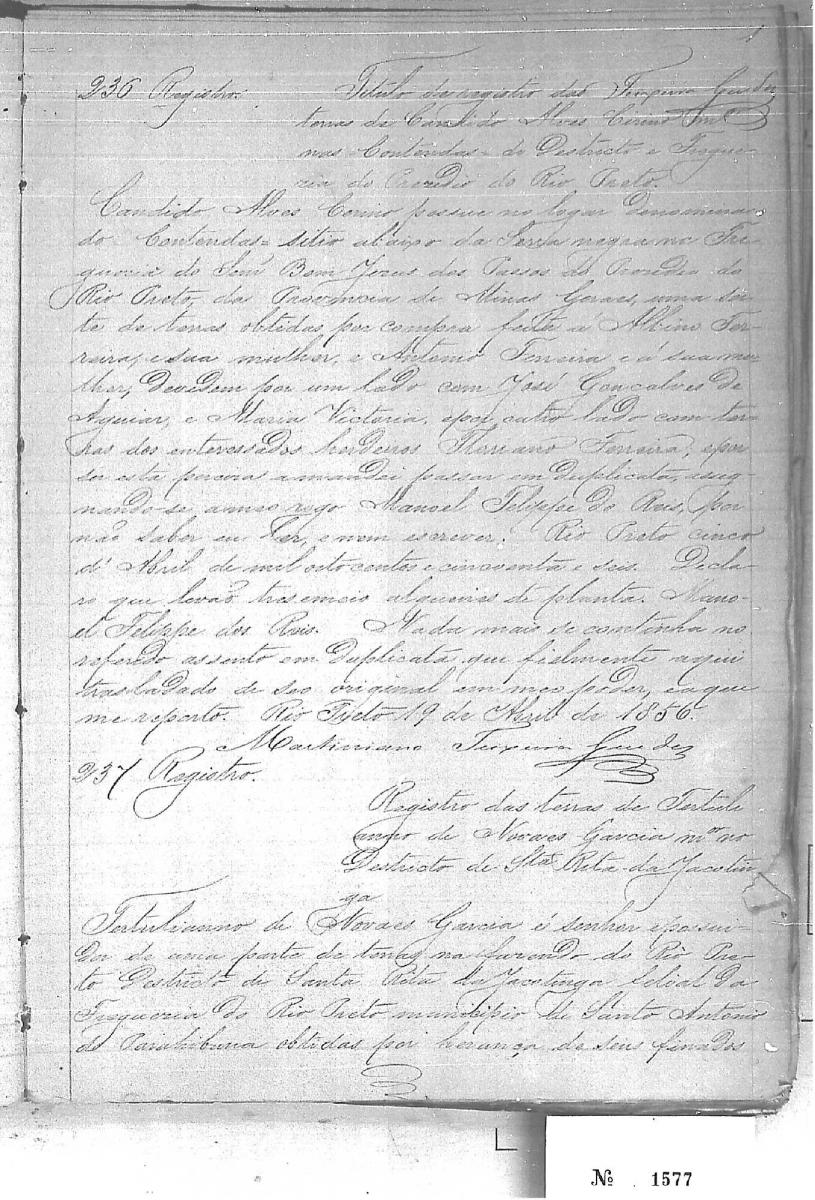 236 Registro.
Titulo de registro das Teixeira Guedes
terras de Candido Alves Cirino
nas Contendas - do Destricto e Fregue-
cia do Precedio do Rio Preto.
Candido Alves Cirino possue no logar denomina
do Contendas = sitio abaixo da Serra negra na Fre-
guecia do Senr Bom Jezus dos Passos do Precedio do
Rio Preto, da Provincia de Minas Geraes, uma sor-
te de terras obtidas por compra feita á Albino Fer-
reira, e sua mulher, e Antonio Ferreira e á sua mu-
lher, devedem por um lado com José Gonçalves de
Aguiar, e Maria Victoria, e por outro lado com ter-
ras dos enteressados herdeiros Floriano Ferreira, e por
ser esta a mandei passar em duplicata, assig-
nando-se a meo rogo Manoel Felippe dos Reis, por
não saber eu ler, e nem escrever. Rio Preto cinco
d' Abril de mil oito centos e cincoenta e seis. Decla-
ro que levão tres e meio alqueires de planta. Mano-
el Felippe dos Reis. Nada mais se continha no
referedo assento em duplicata que fielmente aqui
trasladado de seo original em meo poder, e a que
me reporto. Rio Preto 19 de Abril de 1856.
Martiniano Teixeira Guedes
237 Registro.
Registro das terras de Tertuli
anno de Novaes Garcia mor no
Destricto de Sta Rita da Jacotin
ga
Tertulianno de Novaes Garcia é senher e possui-
dor de uma parte de terras na fazenda do Rio Pre-
to Destricto de Santa Rita da Jacotinga felial da
Freguecia do Rio Preto municipio de Santo Antonio
do Parahibuna obtidas por herança de seus finados
Nº 1577